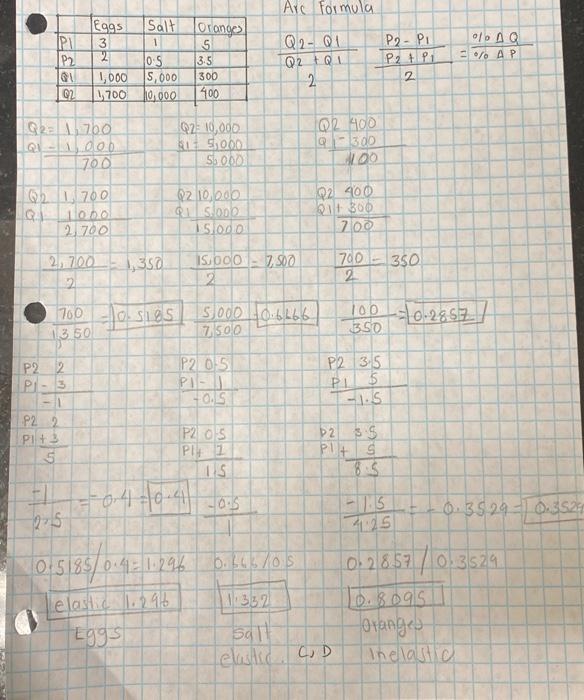 Arc Formula
Eggs Salt Oranges
P1 3 1 5
P2 2 0.5 3.5
Q1 1,000 5,000 300
Q2 1,700 10,000 400
Q2 - Q1 P2 - P1 % Δ Q
Q2 + Q1 P2 + P1 = % Δ P
2 2
Q2 = 1,700 Q2 = 10,000 Q2 400
Q1 - 1,000 Q1 = 5,000 Q1 - 300
700 5,000 100
Q2 1,700 Q2 10,000 Q2 400
Q1 1000 Q1 5,000 Q1 + 300
2,700 15,000 700
2,700 = 1,350 15,000 = 7,500 700 = 350
2 2 2
700 = 0.5185 5,000 = 0.6666 100 = 0.2857
1,350 7,500 350
P2 2 P2 0.5 P2 3.5
P1 - 3 P1 - 1 P1 5
-1 -0.5 -1.5
P2 2 P2 0.5 P2 3.5
P1 + 3 P1 + 1 P1 + 5
5 1.5 8.5
-1 = -0.4 = 0.4 -0.5 -1.5 = -0.3529 = 0.3529
2.5 1 4.25
0.5185/0.4 = 1.296 0.666/0.5 0.2857/0.3529
elastic 1.296 1.332 0.8095
Eggs Salt Oranges
elastic. C, D inelastic